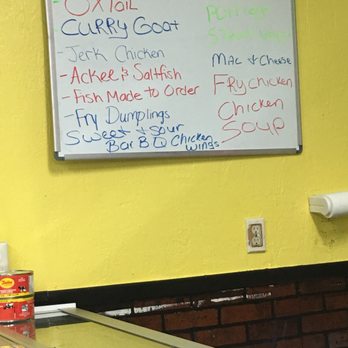 OXTail
CURRY Goat
- Jerk Chicken
- Ackee & Saltfish
- Fish Made to Order
- Fry Dumplings
Sweet & Sour
Bar B Q Chicken
wings
Porridge
Mac & Cheese
Fry Chicken
Chicken
Soup